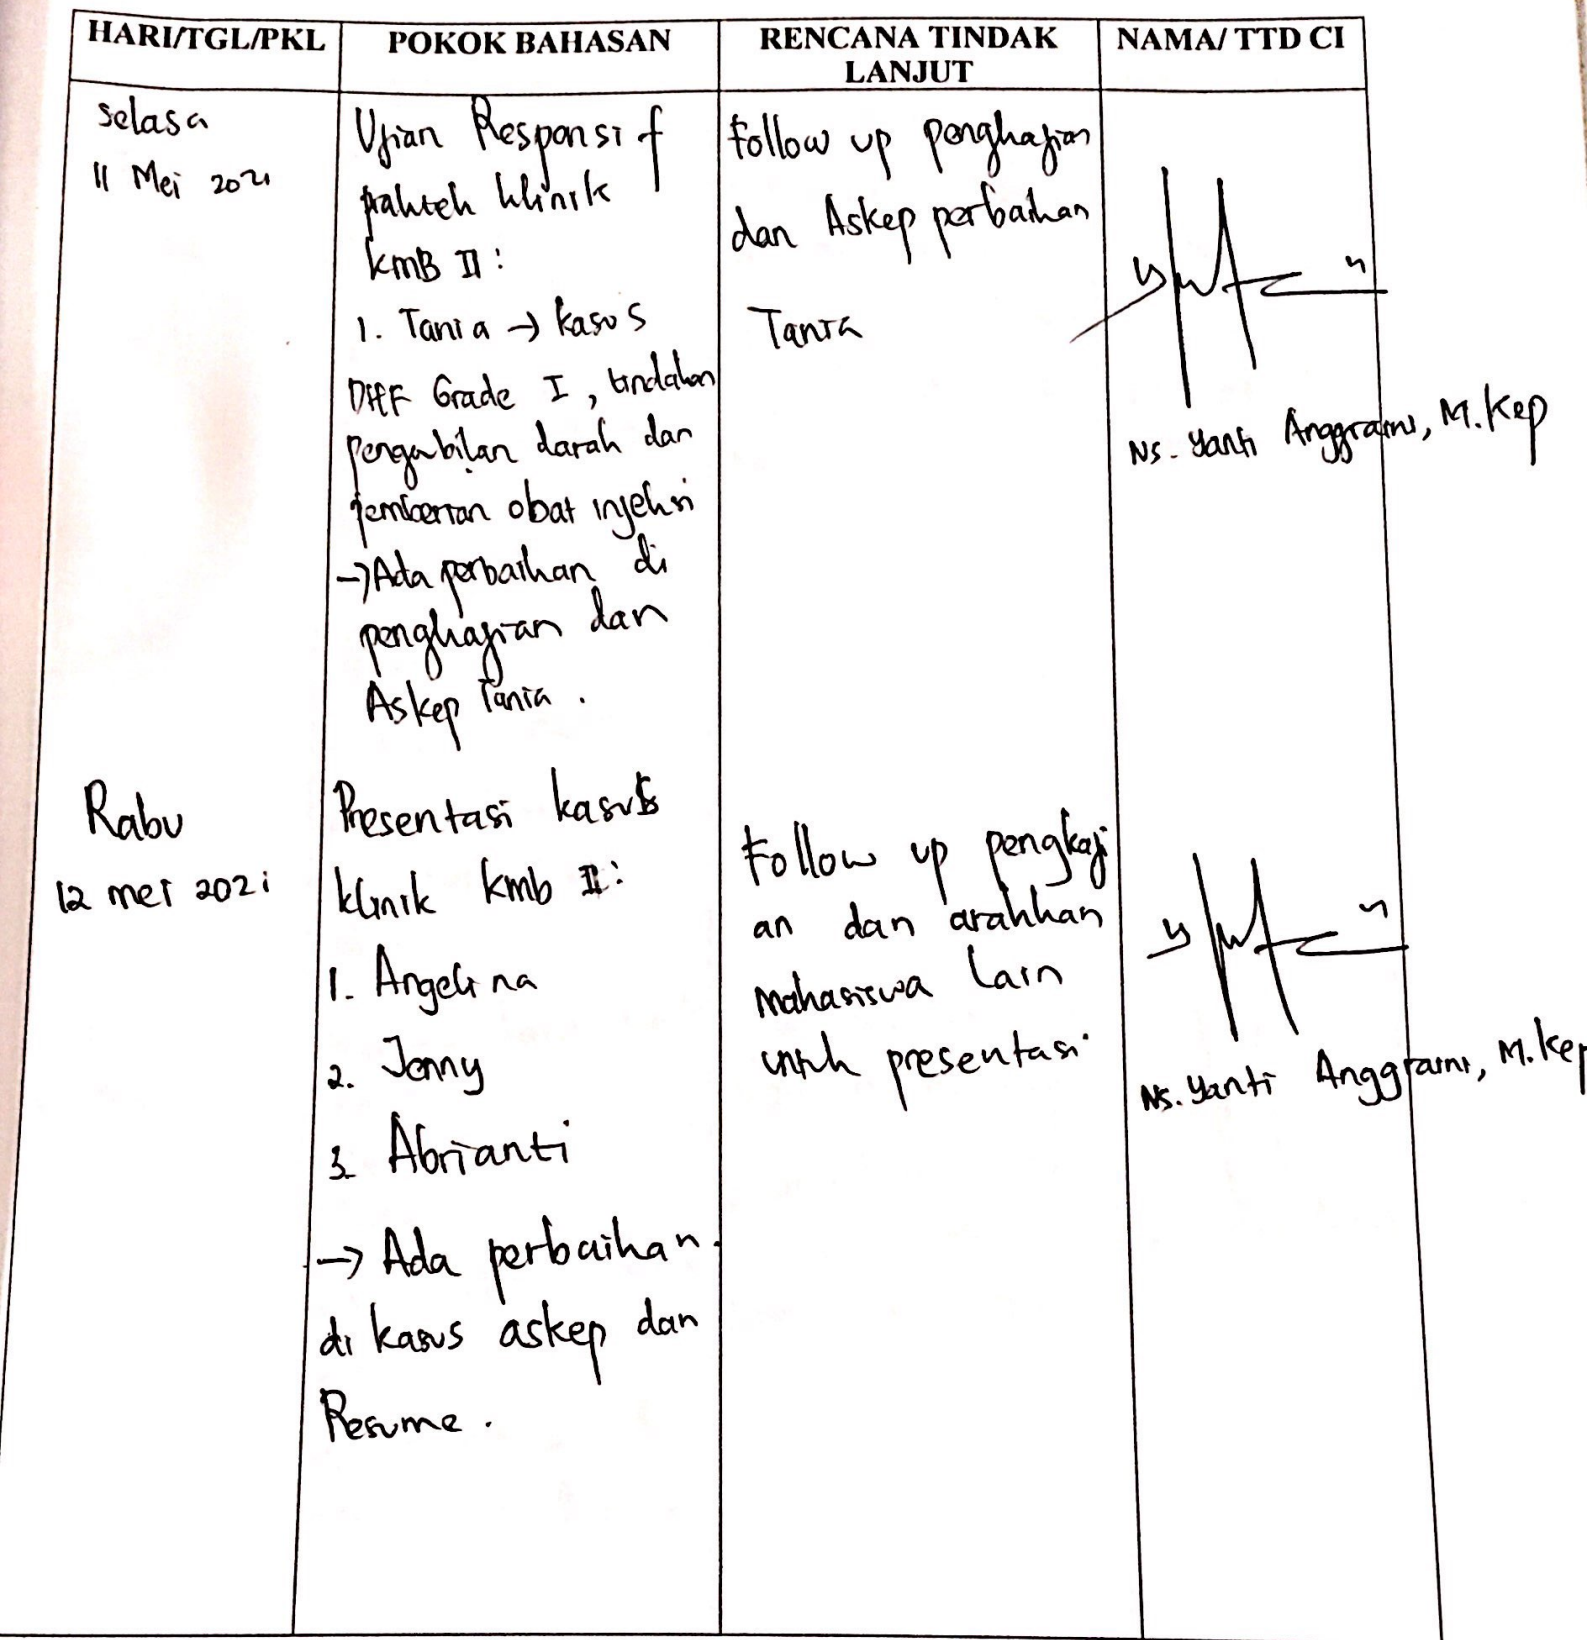 HARI/TGL/PKL
POKOK BAHASAN
RENCANA TINDAK
LANJUT
NAMA/ TTD CI
Selasa
11 Mei 2021
Ujian Responsif
praktek klinik
KMB II :
1. Tania → kasus
DHF Grade I, tindakan
pengabilan darah dan
pemberian obat injeksi
→ Ada perbaikan di
pengkajian dan
Askep Tania .
Follow up pengkajian
dan Askep perbaikan
Tania
Ns. Yanti Anggraini, M.Kep
Rabu
12 mei 2021
Presentasi kasus
klinik kmb II :
1. Angelina
2. Jenny
3. Abrianti
→ Ada perbaikan
di kasus askep dan
Resume .
Follow up pengkaji
an dan arahkan
mahasiswa lain
untuk presentasi
Ns. Yanti Anggraini, M.Kep